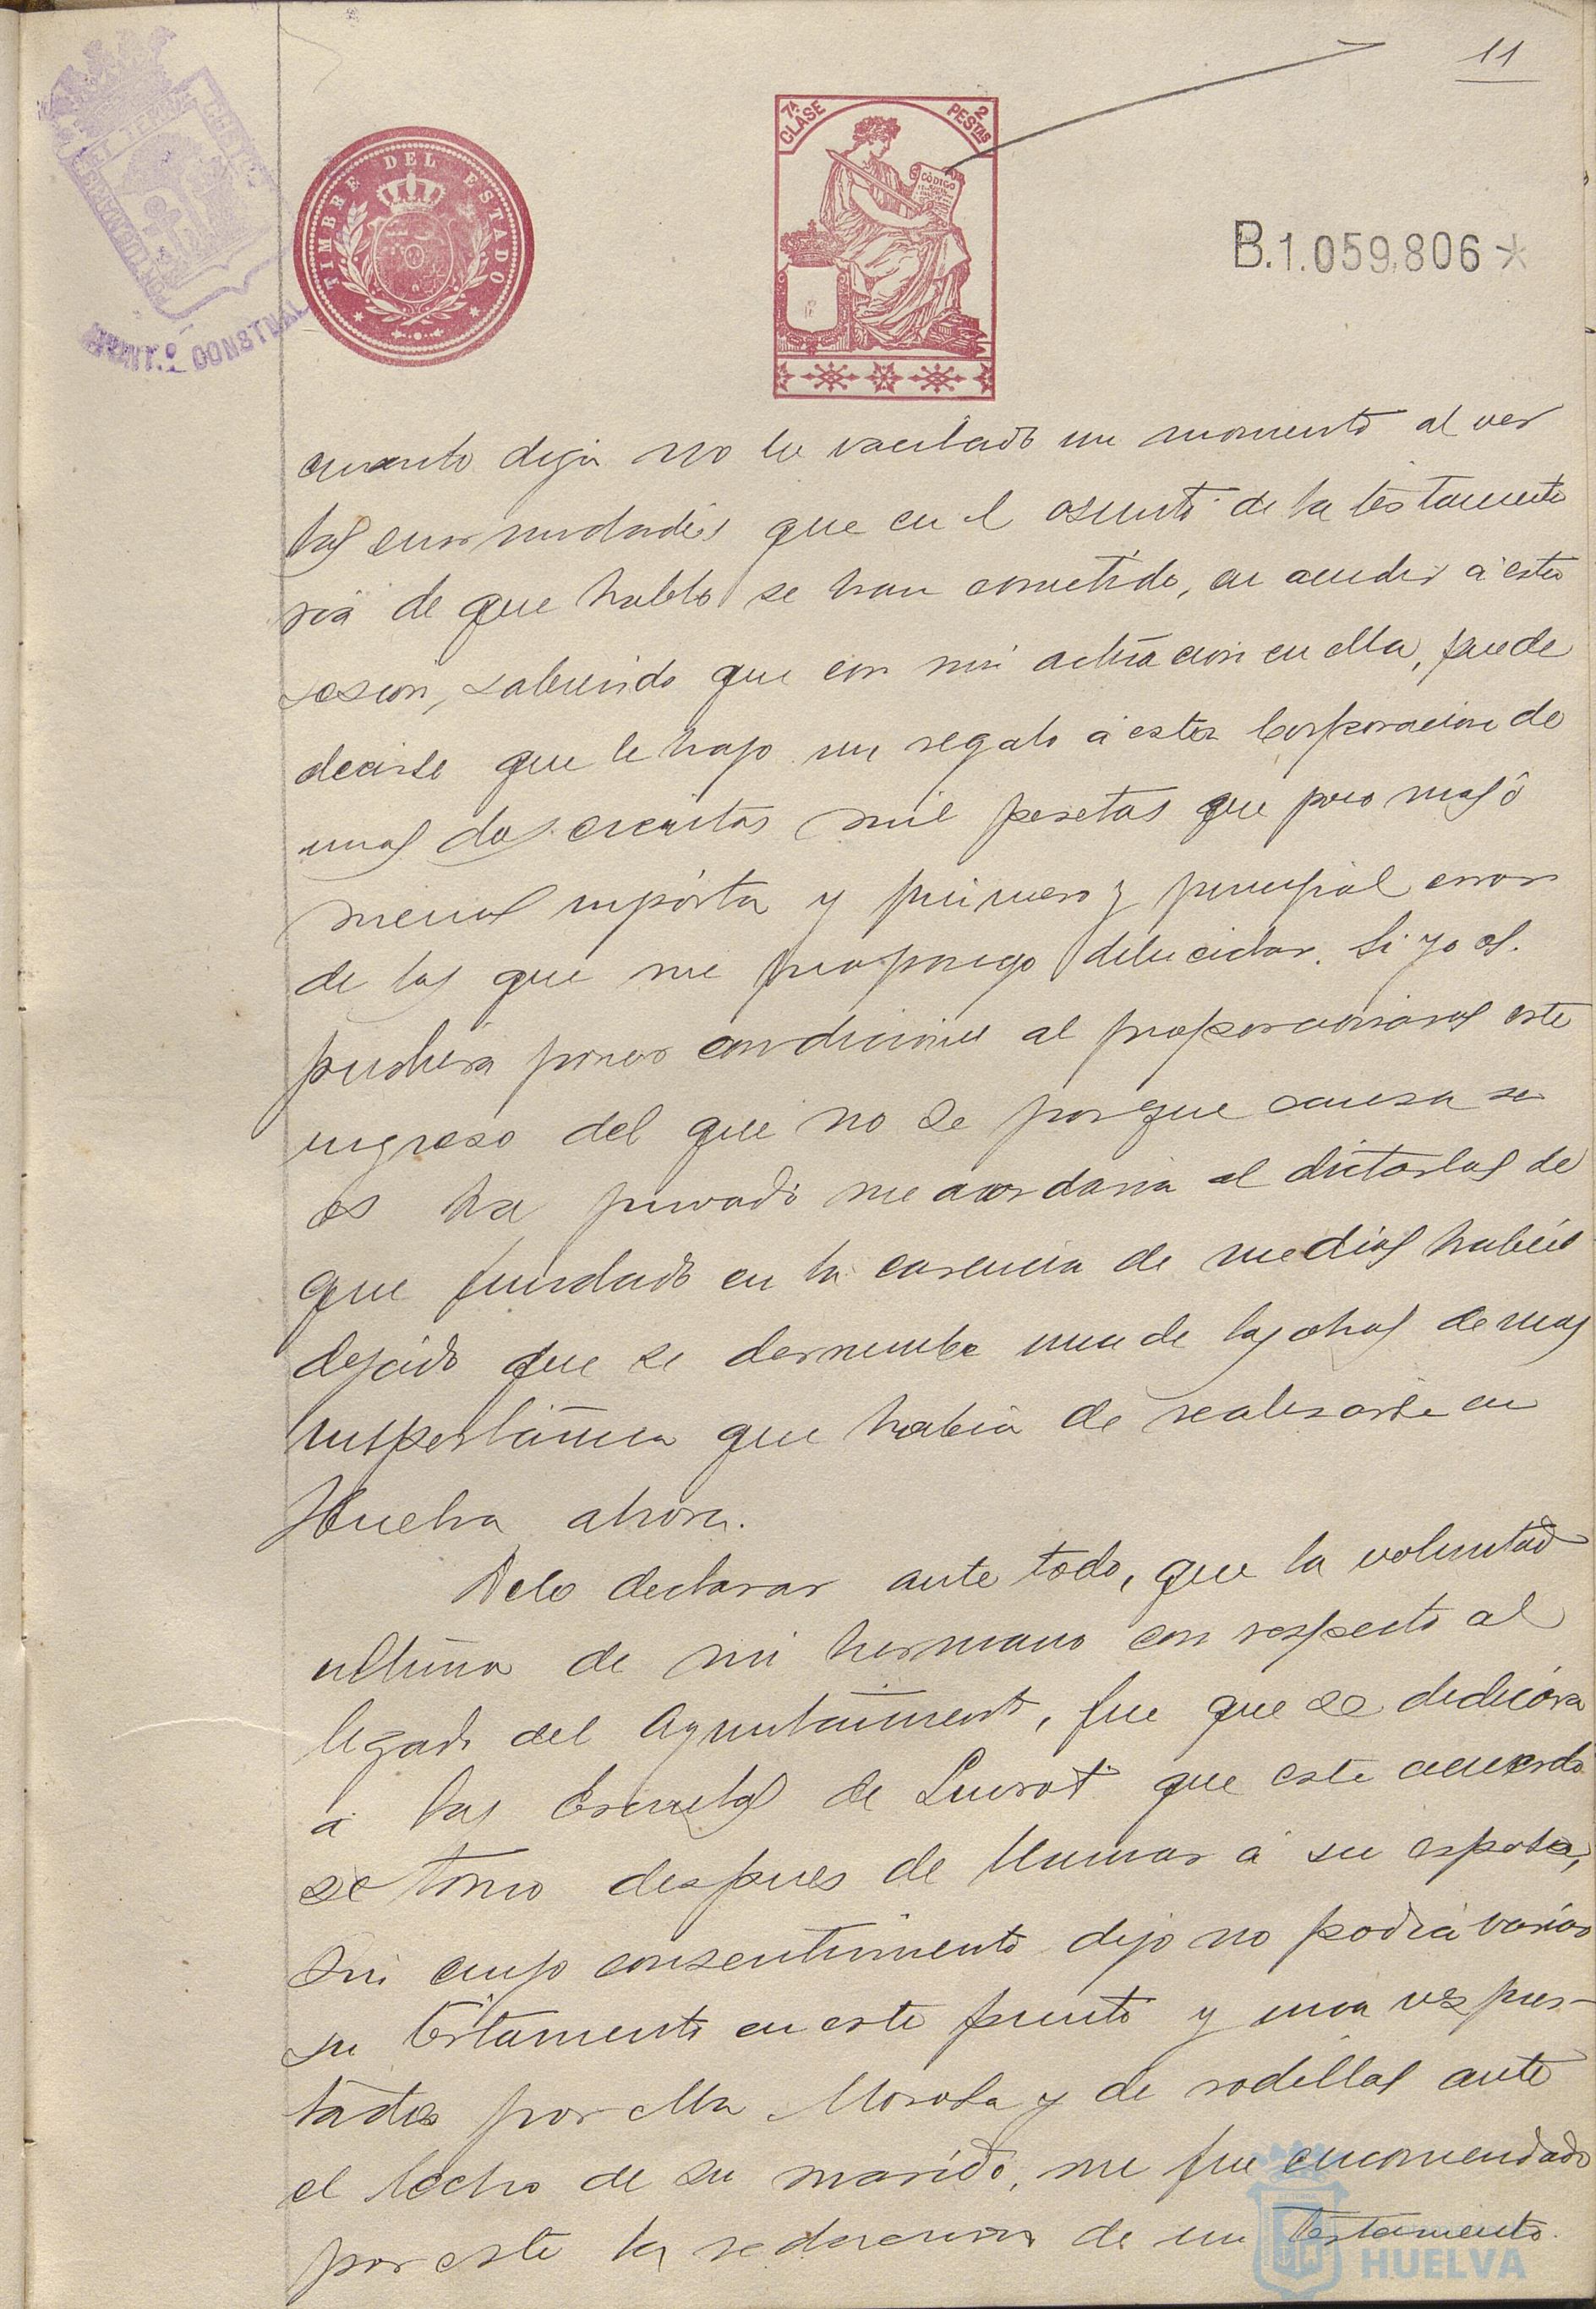 11
7ª CLASE
2 PESTAS
CÓDIGO
TIMBRE DEL ESTADO
B.1.059,806*
AYUNT.º CONSTNAL
cuanto dija no he vacilado un momento al ver
las enormidades que en el asunto de la testamente
ria de que hablo se han cometido, en acudir á esta
sesion, sabiendo que con mi actuacion en ella, puede
decirse que le hago un regalo á esta Corporacion de
unas doscientas mil pesetas que poco mas ó
menos importa y primero y principal error
de los que me propongo dilucidar. Si yo os
pudiera poner condiciones al proporcionaros este
ingreso del que no se porque causa se
os ha privado me acordaria al dictarlas de
que fundado en la carencia de medios habeis
dejado que se derrumbe una de las obras de mas
importancia que habia de realizarse en
Huelva ahora.
Debo declarar ante todo, que la voluntad
ultima de mi hermano con respecto al
legado del Ayuntamiento, fue que se dedicara
á las Escuelas de Siurot que este acuerdo
se tomo despues de llamar á su esposa,
sin cuyo consentimiento dijo no podia variar
su testamento en este punto y una vez pres-
tado por ella llorosa y de rodillas ante
el lecho de su marido, me fue encomendado
por este la redaccion de un testamento.
HUELVA